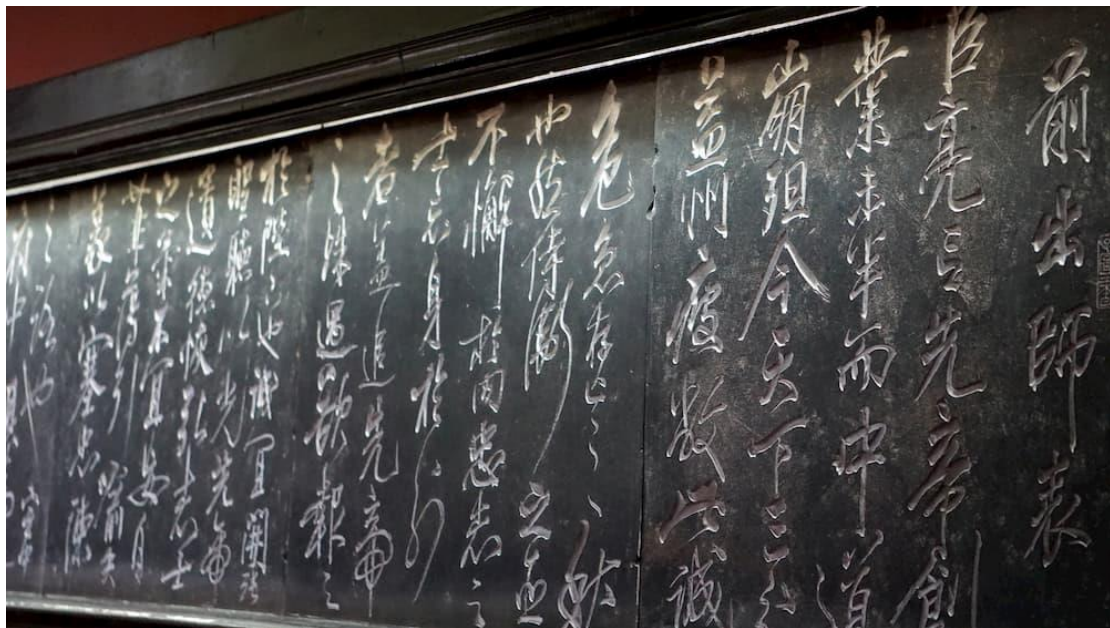 前出師表
臣亮言先帝創
業未半而中道
崩殂今天下三分
益州疲敝此誠
危急存亡之秋
也然侍衛之臣
不懈於內忠志之
士忘身於外
者蓋追先帝
之殊遇欲報之
於陛下也誠宜開張
聖聽以光先帝
遺德恢弘志士
之氣不宜妄自
菲薄引喻失
義以塞忠諫
之路也宮中
府中